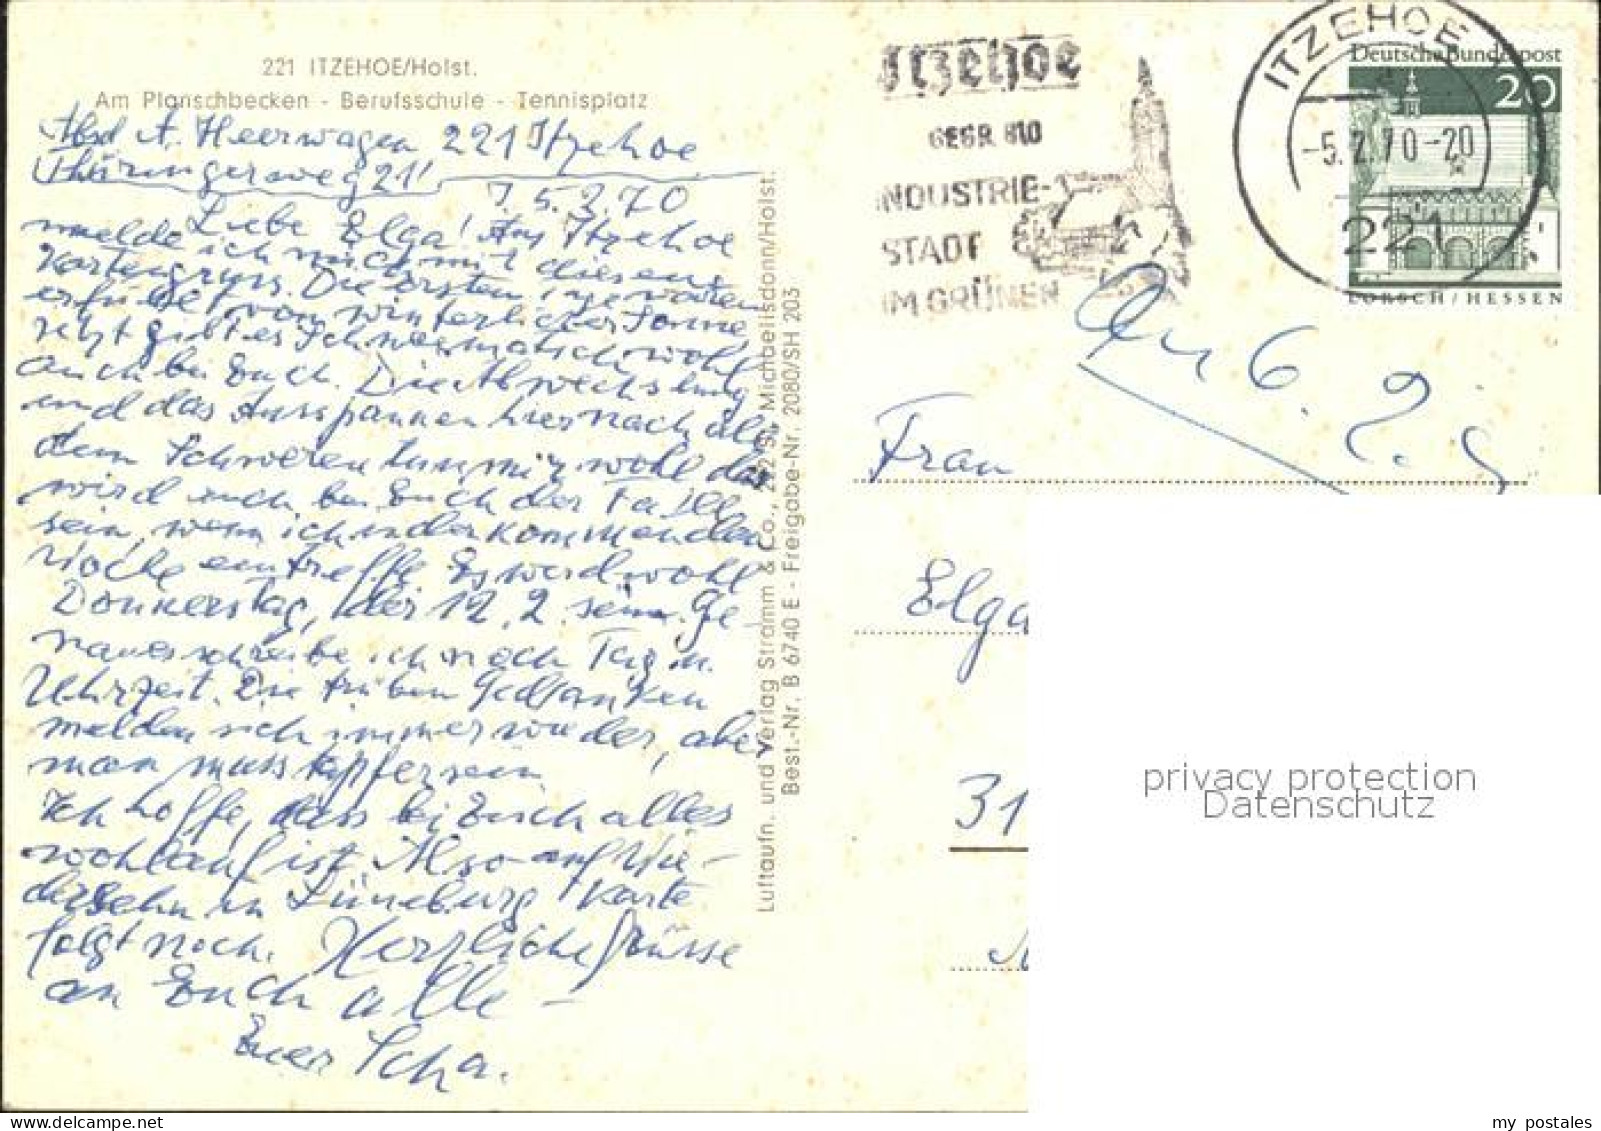 221 ITZEHOE/Holst.
Am Planschbecken - Berufsschule - Tennisplatz
Absd A. Heerwagen 221 Itzehoe
Thüringerweg 21!
5.2.70
Liebe Elga! Aus Itzehoe
melde ich mich mit diesem
Kartengruss. Die ersten Tage waren
erfüllt von winterlicher Sonne
jetzt gibt es Schneematsch wohl
auch bei Euch. Die Abwechslung
und das Ausspannen hier nach all
dem Schweren tun mir wohl das
wird auch bei Euch der Fall
sein, wenn ich in der kommenden
Woche eintreffe. Es wird wohl
Donnerstag, der 12.2. sein. Ge-
naues schreibe ich noch Tag u.
Uhrzeit. Die trüben Gedanken
melden sich immer wieder, aber
man muss tapfer sein
Ich hoffe, dass bei Euch alles
wohlauf ist. Also auf Wie-
dersehn in Lüneburg Karte
folgt noch. Herzliche Grüsse
an Euch alle -
Euer Scha.
Luftaufn. und Verlag Stramm & Co., 2222 St. Michaelisdonn/Holst.
Best.-Nr. B 6740 E - Freigabe-Nr. 2080/SH 203
Itzehoe
GEGR. 810
INDUSTRIE-
STADT
IM GRÜNEN
ITZEHOE
-5.2.70-20
221
Deutsche Bundespost
20
LORSCH/HESSEN
6.2.
Frau
Elga
31
privacy protection
Datenschutz
my postales